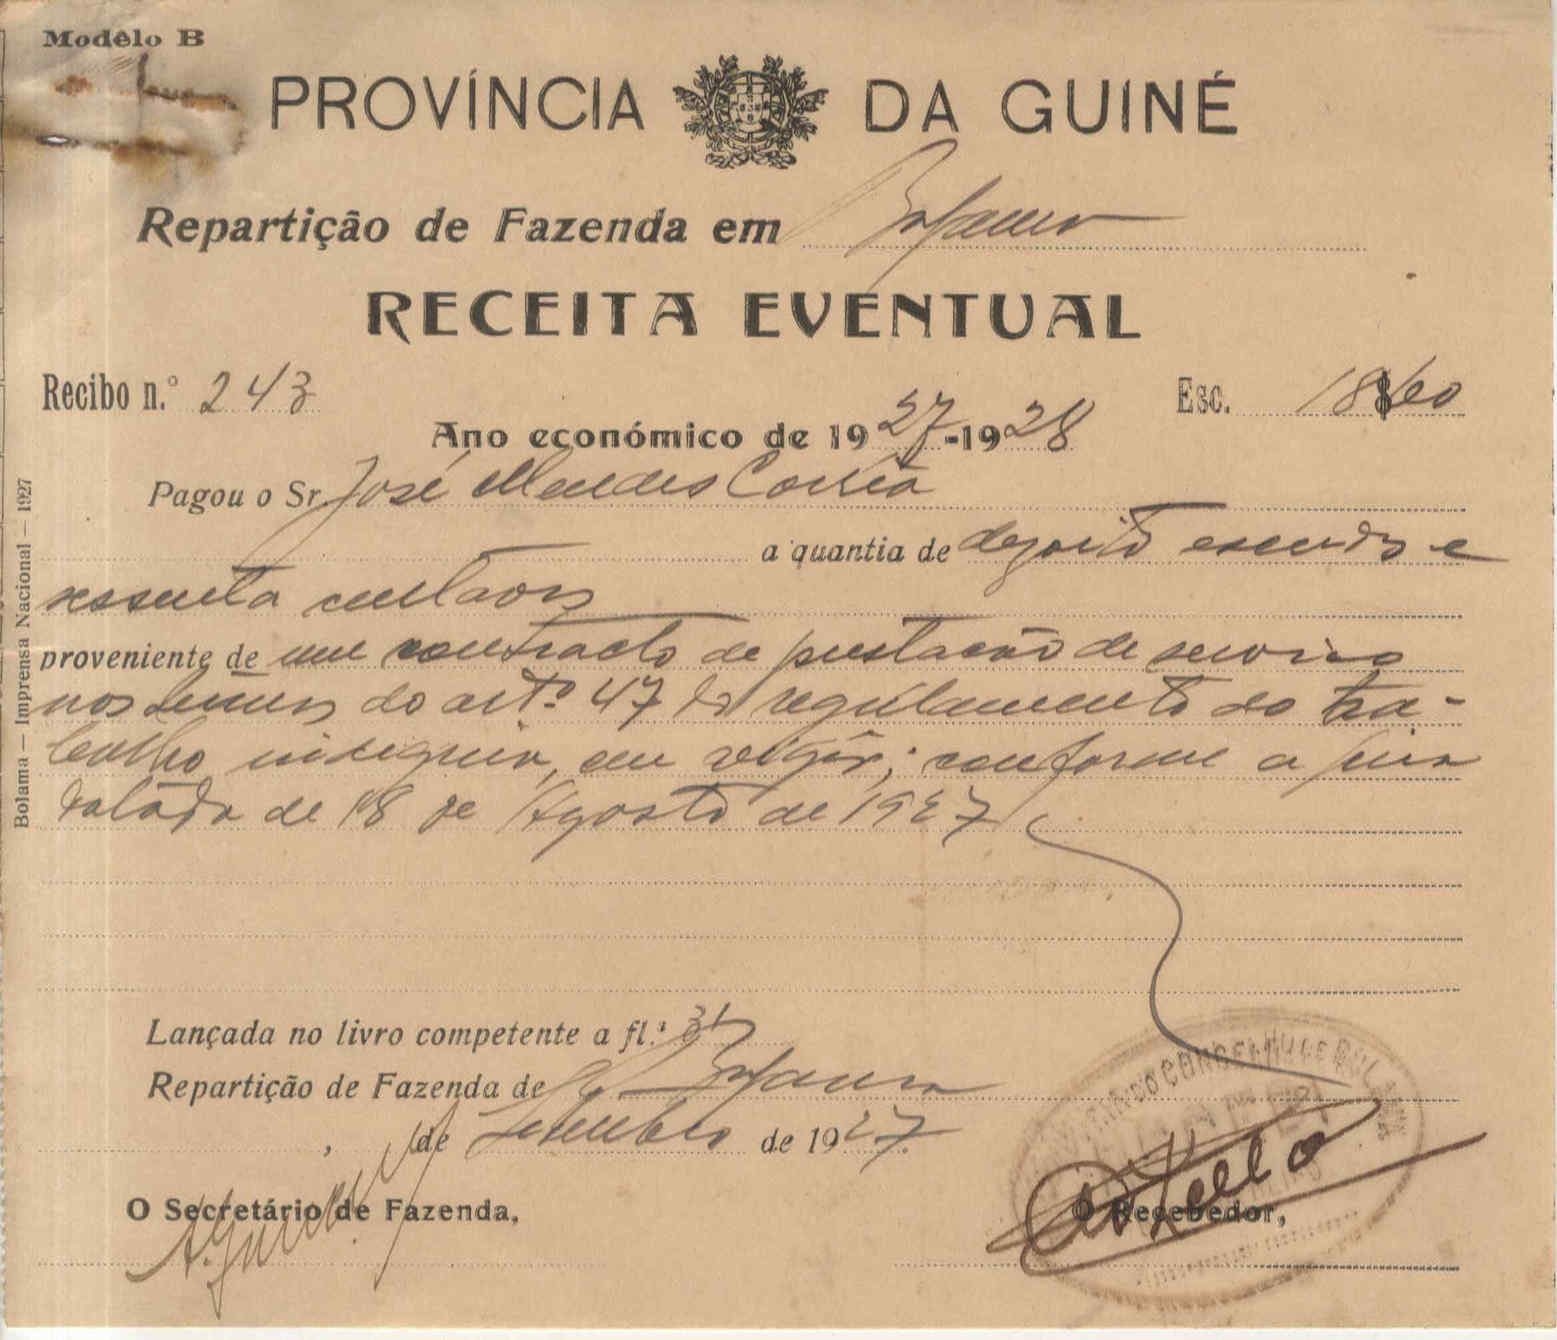 Modêlo B
PROVÍNCIA DA GUINÉ
Repartição de Fazenda em Bafama
RECEITA EVENTUAL
Recibo n.º 243
Esc. 18$60
Ano económico de 1927-1928
Pagou o Sr. José Mendes Corrêa
a quantia de dezoito escudos e
sessenta centavos
proveniente de um contracto de prestação de serviço
nos termos do artº 47 do regulamento do tra-
balho indigena, em vigôr; conforme a guia
datada de 18 de Agosto de 1927
Lançada no livro competente a fl.ˢ 31
Repartição de Fazenda de
, de Setembro de 1927.
O Secretário de Fazenda,
O Recebedor,
Bolama — Imprensa Nacional — 1927